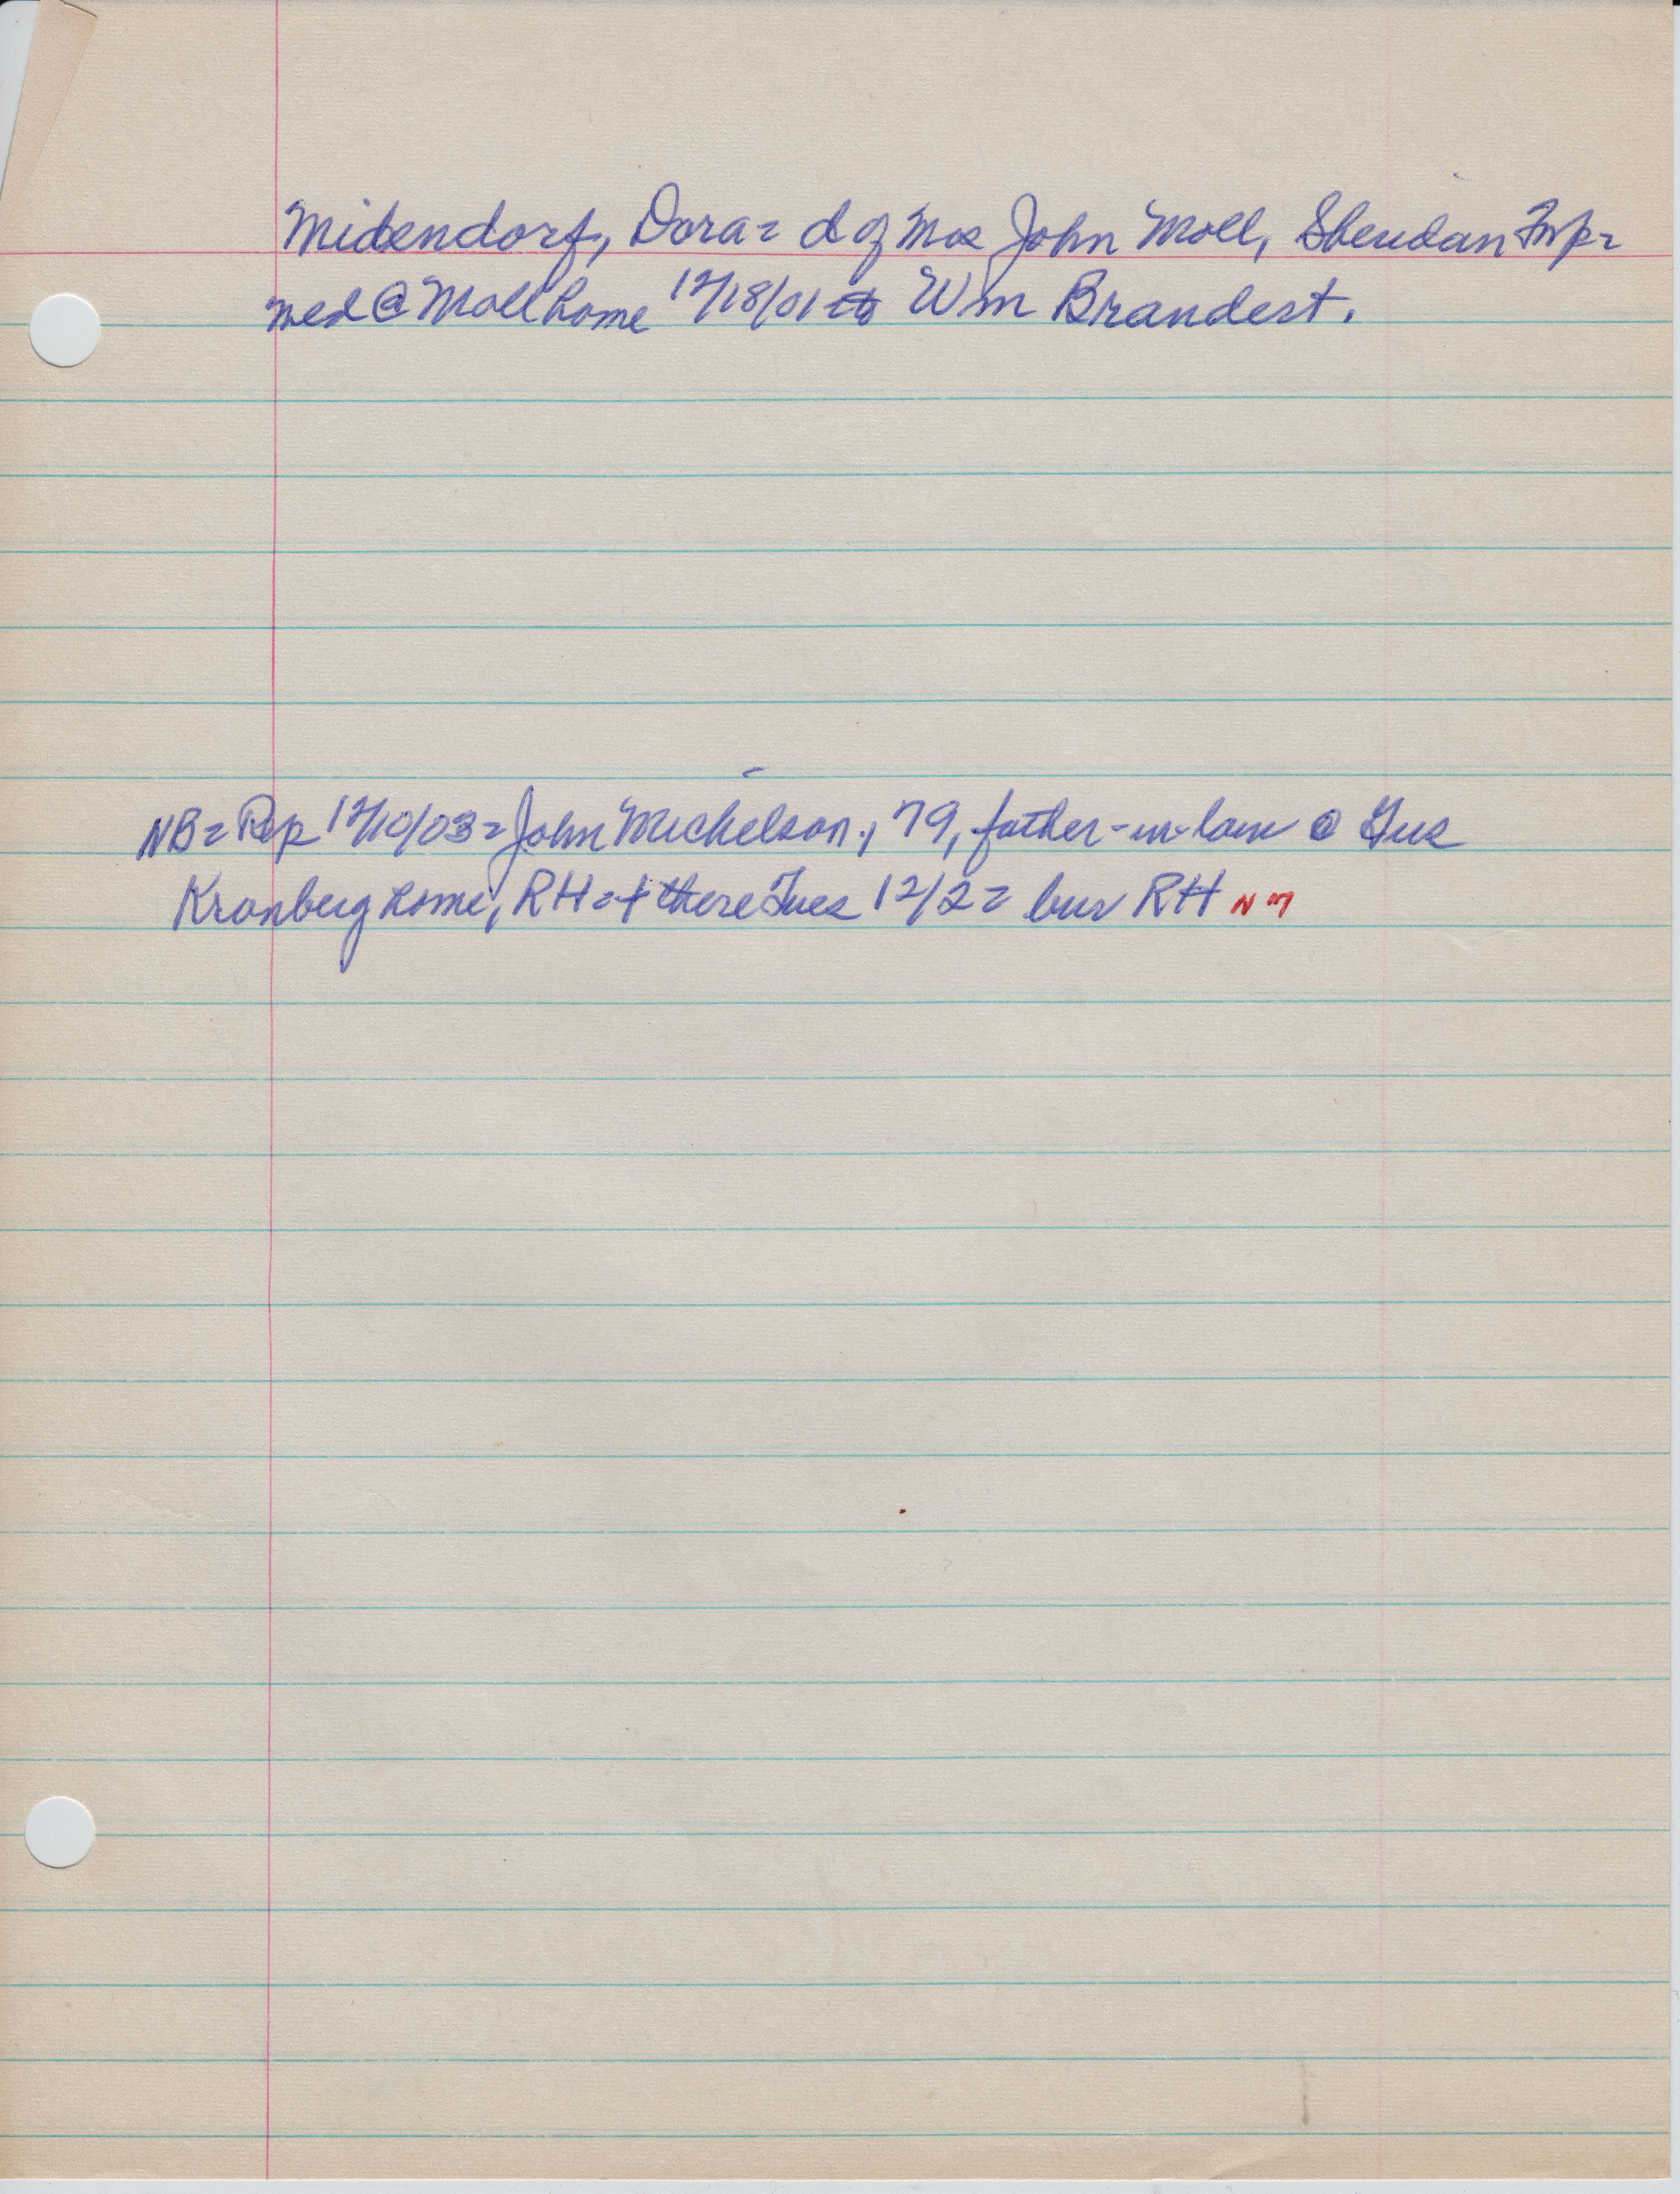 Midendorf, Dora = d of Mrs John Moll, Sheridan Twp =
wed @ Moll home 12/18/01 to Wm Brandest.
NB = Rep 12/10/03 = John Michelson, 79, father-in-law @ Gus
Kronberg home, RH = + there Tues 12/2 = bur RH NM